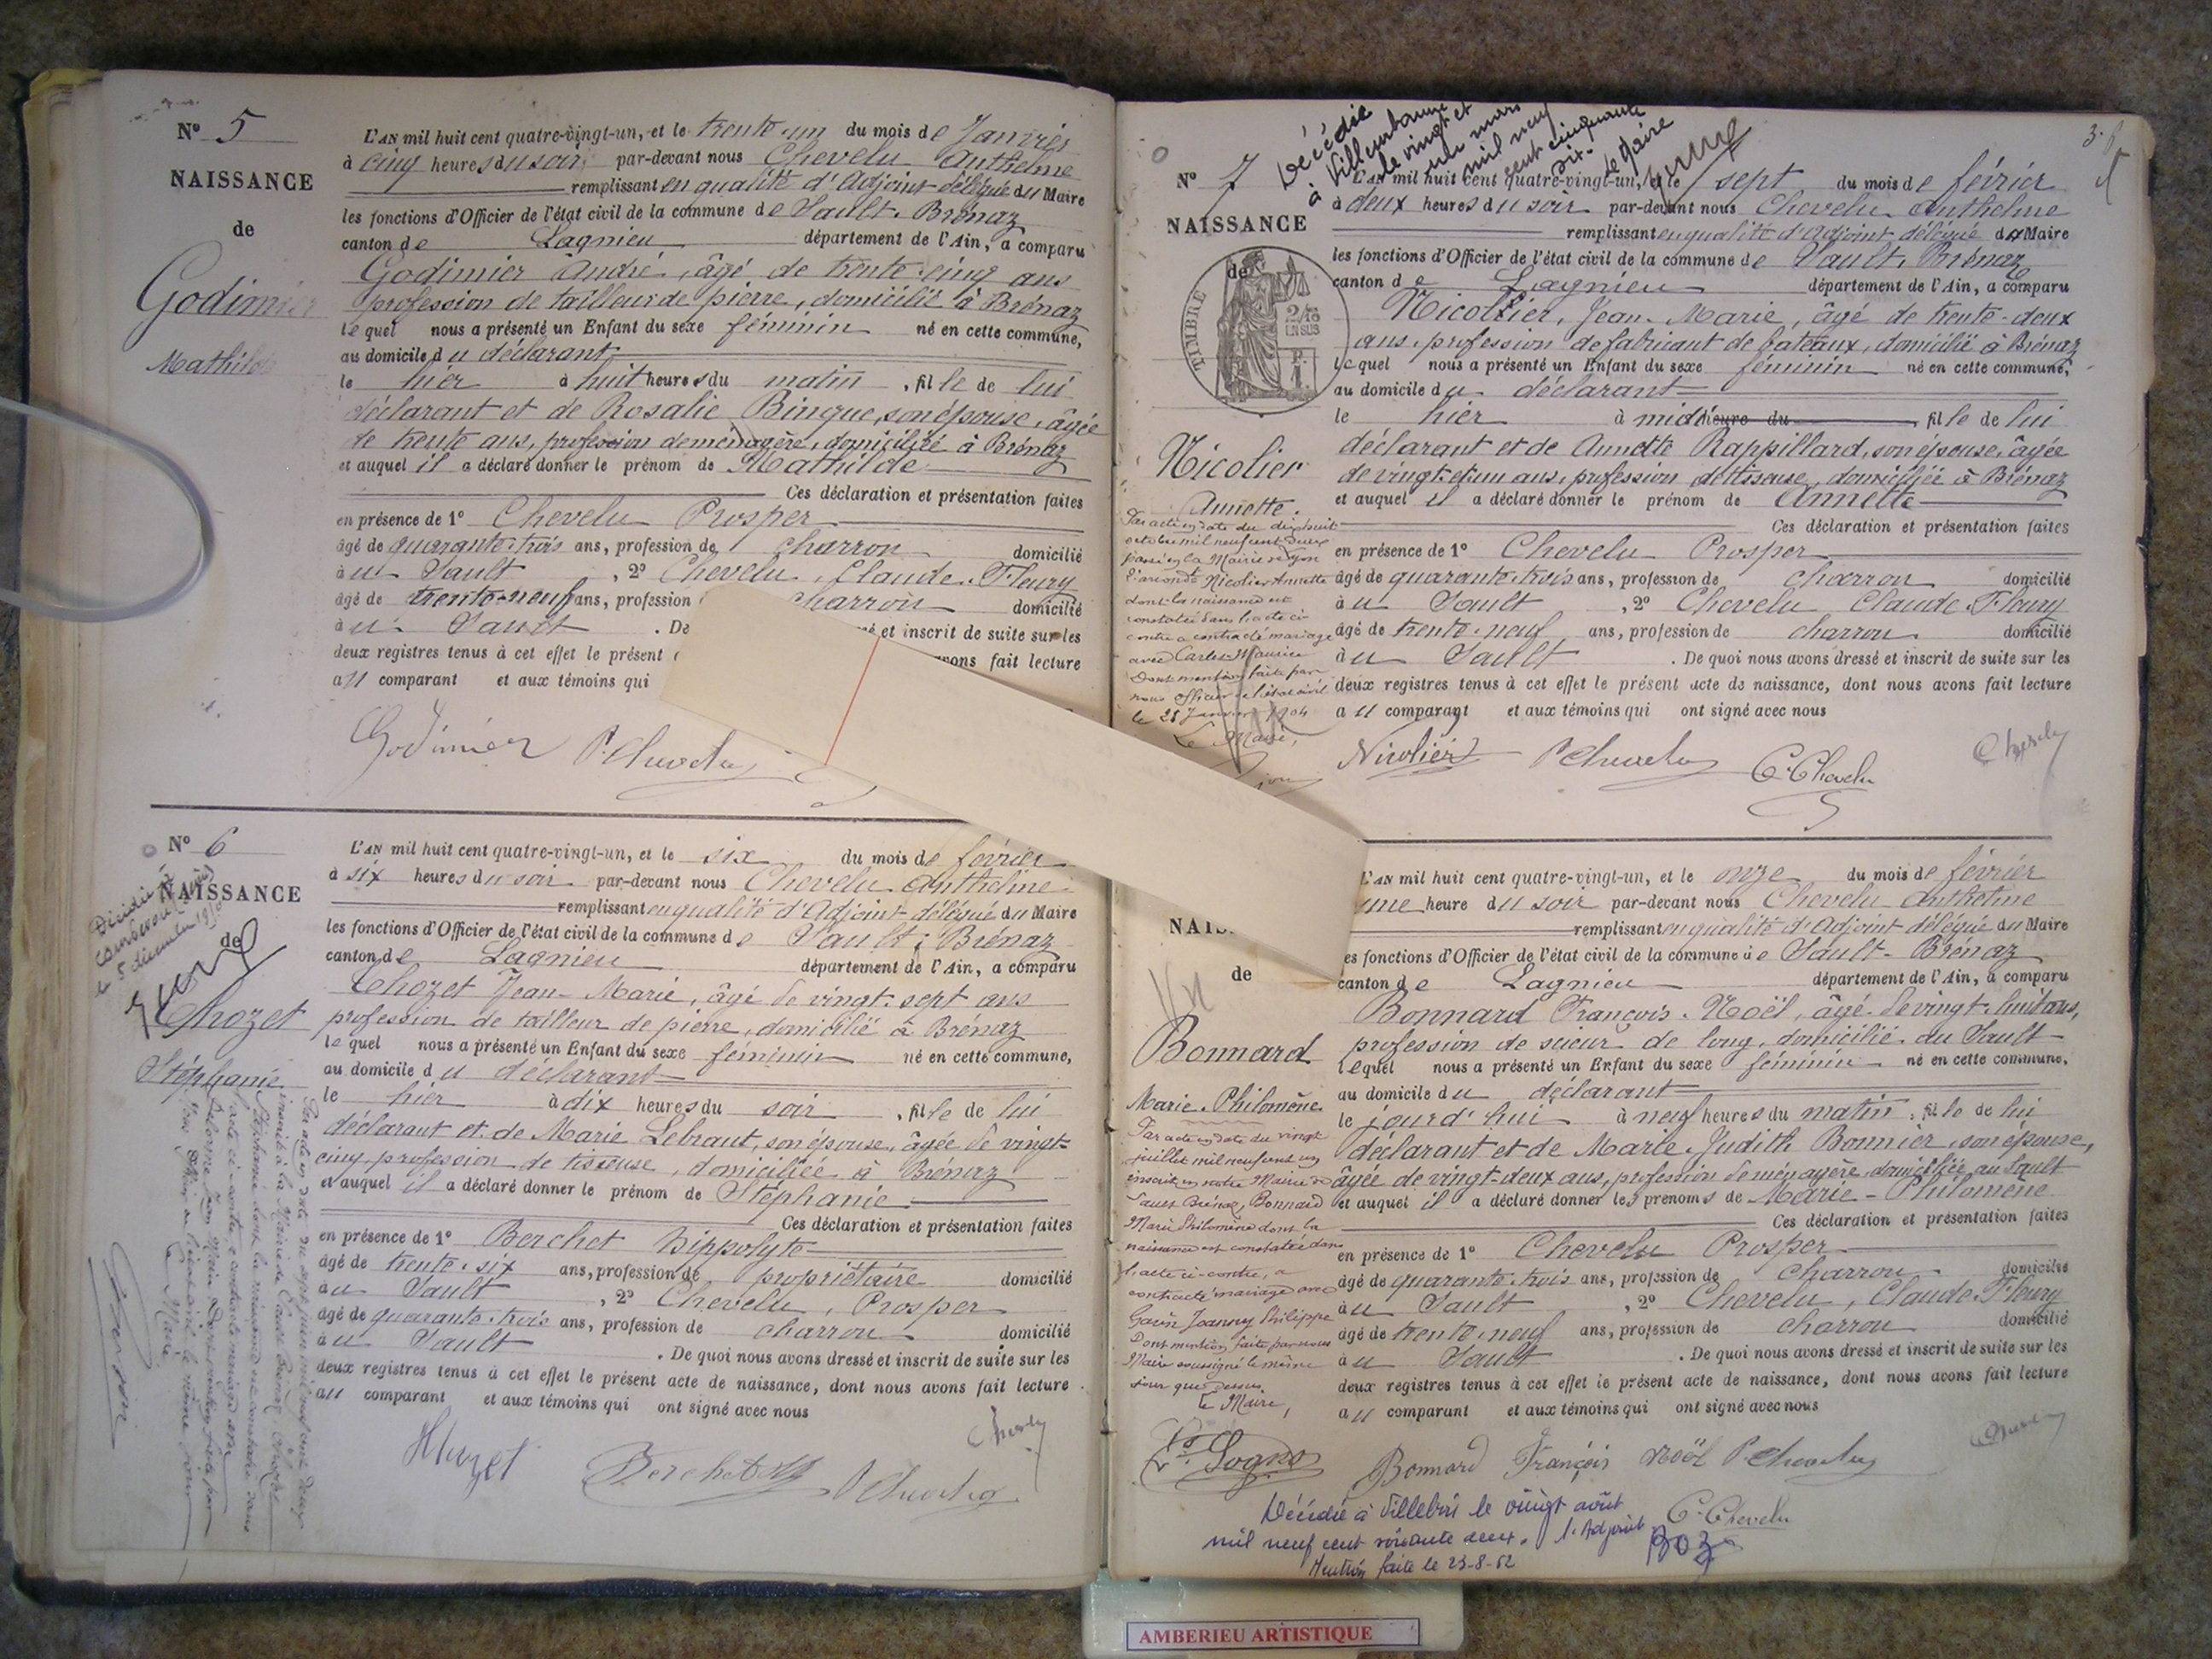 Nº 5
NAISSANCE
de
Godimier
Mathilde
L'AN mil huit cent quatre-vingt-un, et le trente-un du mois de Janvier
à cinq heures du soir par-devant nous Chevelu Anthelme
remplissant en qualité d'Adjoint délégué du Maire
les fonctions d'Officier de l'état civil de la commune de Sault-Brénaz
canton de Lagnieu département de l'Ain, a comparu
Godimier André, âgé de trente-cinq ans
profession de tailleur de pierre, domicilié à Brénaz
lequel nous a présenté un Enfant du sexe féminin né en cette commune,
au domicile du déclarant
le hier à huit heures du matin, fille de lui
déclarant et de Rosalie Binque, son épouse, âgée
de trente ans, profession de ménagère, domiciliée à Brénaz
et auquel il a déclaré donner le prénom de Mathilde
Ces déclaration et présentation faites
en présence de 1º Chevelu Prosper
âgé de quarante-trois ans, profession de charron domicilié
au Sault, 2º Chevelu, Claude-Fleury
âgé de trente-neuf ans, profession charron domicilié
au Sault. De et inscrit de suite sur les
deux registres tenus à cet effet le présent avons fait lecture
au comparant et aux témoins qui
Godimier P. Chevelu
Nº 6
NAISSANCE
de
Chozet
Stéphanie
Décédée à
le 5 décembre
L'AN mil huit cent quatre-vingt-un, et le six du mois de février
à six heures du soir par-devant nous Chevelu Anthelme
remplissant en qualité d'Adjoint délégué du Maire
les fonctions d'Officier de l'état civil de la commune de Sault-Brénaz
canton de Lagnieu département de l'Ain, a comparu
Chozet Jean-Marie, âgé de vingt-sept ans
profession de tailleur de pierre, domicilié à Brénaz
lequel nous a présenté un Enfant du sexe féminin né en cette commune,
au domicile du déclarant
le hier à dix heures du soir, fille de lui
déclarant et de Marie Lebraut, son épouse, âgée de vingt-
cinq, profession de tisseuse, domiciliée à Brénaz
et auquel il a déclaré donner le prénom de Stéphanie
Ces déclaration et présentation faites
en présence de 1º Berchet Hippolyte
âgé de trente-six ans, profession de propriétaire domicilié
au Sault, 2º Chevelu, Prosper
âgé de quarante-trois ans, profession de charron domicilié
au Sault. De quoi nous avons dressé et inscrit de suite sur les
deux registres tenus à cet effet le présent acte de naissance, dont nous avons fait lecture
au comparant et aux témoins qui ont signé avec nous
Chozet Berchet P. Chevelu Chevelu
3.
Décédée
à Villeurbanne
le vingt et
un mars
mil neuf
cent cinquante
six.
le Maire
Nº 7
NAISSANCE
de
TIMBRE
2/10
EN SUS
Nicolier
Annette.
Par acte en date du dix-huit
octobre mil neuf cent deux
passé en la Mairie de Lyon
Nicolier Annette
dont la naissance est
constatée dans l'acte ci-
contre a contracté mariage
avec Carlet Maurice
Dont mention faite par
nous officier de l'état civil
le 25 Janvier 1904
Le Maire,
L'AN mil huit cent quatre-vingt-un, et le sept du mois de février
à deux heures du soir par-devant nous Chevelu Anthelme
remplissant en qualité d'Adjoint délégué du Maire
les fonctions d'Officier de l'état civil de la commune de Sault-Brénaz
canton de Lagnieu département de l'Ain, a comparu
Nicollier, Jean-Marie, âgé de trente-deux
ans, profession de fabricant de bateaux, domicilié à Brénaz
lequel nous a présenté un Enfant du sexe féminin né en cette commune,
au domicile du déclarant
le hier à midi heure du, fille de lui
déclarant et de Annette Rappillard, son épouse, âgée
de vingt-et-un ans, profession de tisseuse, domiciliée à Brénaz
et auquel il a déclaré donner le prénom de Annette
Ces déclaration et présentation faites
en présence de 1º Chevelu Prosper
âgé de quarante-trois ans, profession de charron domicilié
au Sault, 2º Chevelu Claude-Fleury
âgé de trente-neuf ans, profession de charron domicilié
au Sault. De quoi nous avons dressé et inscrit de suite sur les
deux registres tenus à cet effet le présent acte de naissance, dont nous avons fait lecture
au comparant et aux témoins qui ont signé avec nous
Nicolier P. Chevelu C. Chevelu Chevelu
NAIS
de
Bonnard
Marie-Philomène
Par acte en date du vingt
juillet mil neuf cent un
inscrit en notre Mairie de
Sault-Brénaz, Bonnard
Marie Philomène dont la
naissance est constatée dans
l'acte ci-contre, a
contracté mariage avec
Gavin Joanny Philippe
Dont mention faite par nous
Maire soussigné le même
jour que dessus.
Le Maire,
L'AN mil huit cent quatre-vingt-un, et le onze du mois de février
une heure du soir par-devant nous Chevelu Anthelme
remplissant en qualité d'Adjoint délégué du Maire
les fonctions d'Officier de l'état civil de la commune de Sault-Brénaz
canton de Lagnieu département de l'Ain, a comparu
Bonnard François-Noël, âgé de vingt-huit ans,
profession de scieur de long, domicilié au Sault
lequel nous a présenté un Enfant du sexe féminin né en cette commune,
au domicile du déclarant
le jourd'hui à neuf heures du matin, fille de lui
déclarant et de Marie-Judith Bonnier, son épouse,
âgée de vingt-deux ans, profession de ménagère, domiciliée au Sault
et auquel il a déclaré donner les prénoms de Marie-Philomène
Ces déclaration et présentation faites
en présence de 1º Chevelu Prosper
âgé de quarante-trois ans, profession de charron domicilié
au Sault, 2º Chevelu, Claude-Fleury
âgé de trente-neuf ans, profession de charron domicilié
au Sault. De quoi nous avons dressé et inscrit de suite sur les
deux registres tenus à cet effet le présent acte de naissance, dont nous avons fait lecture
au comparant et aux témoins qui ont signé avec nous
Bonnard François Noël P. Chevelu Chevelu
C. Chevelu
Décédée à Villebois le vingt août
mil neuf cent soixante deux. l'Adjoint
Mention faite le 23-8-62
AMBERIEU ARTISTIQUE